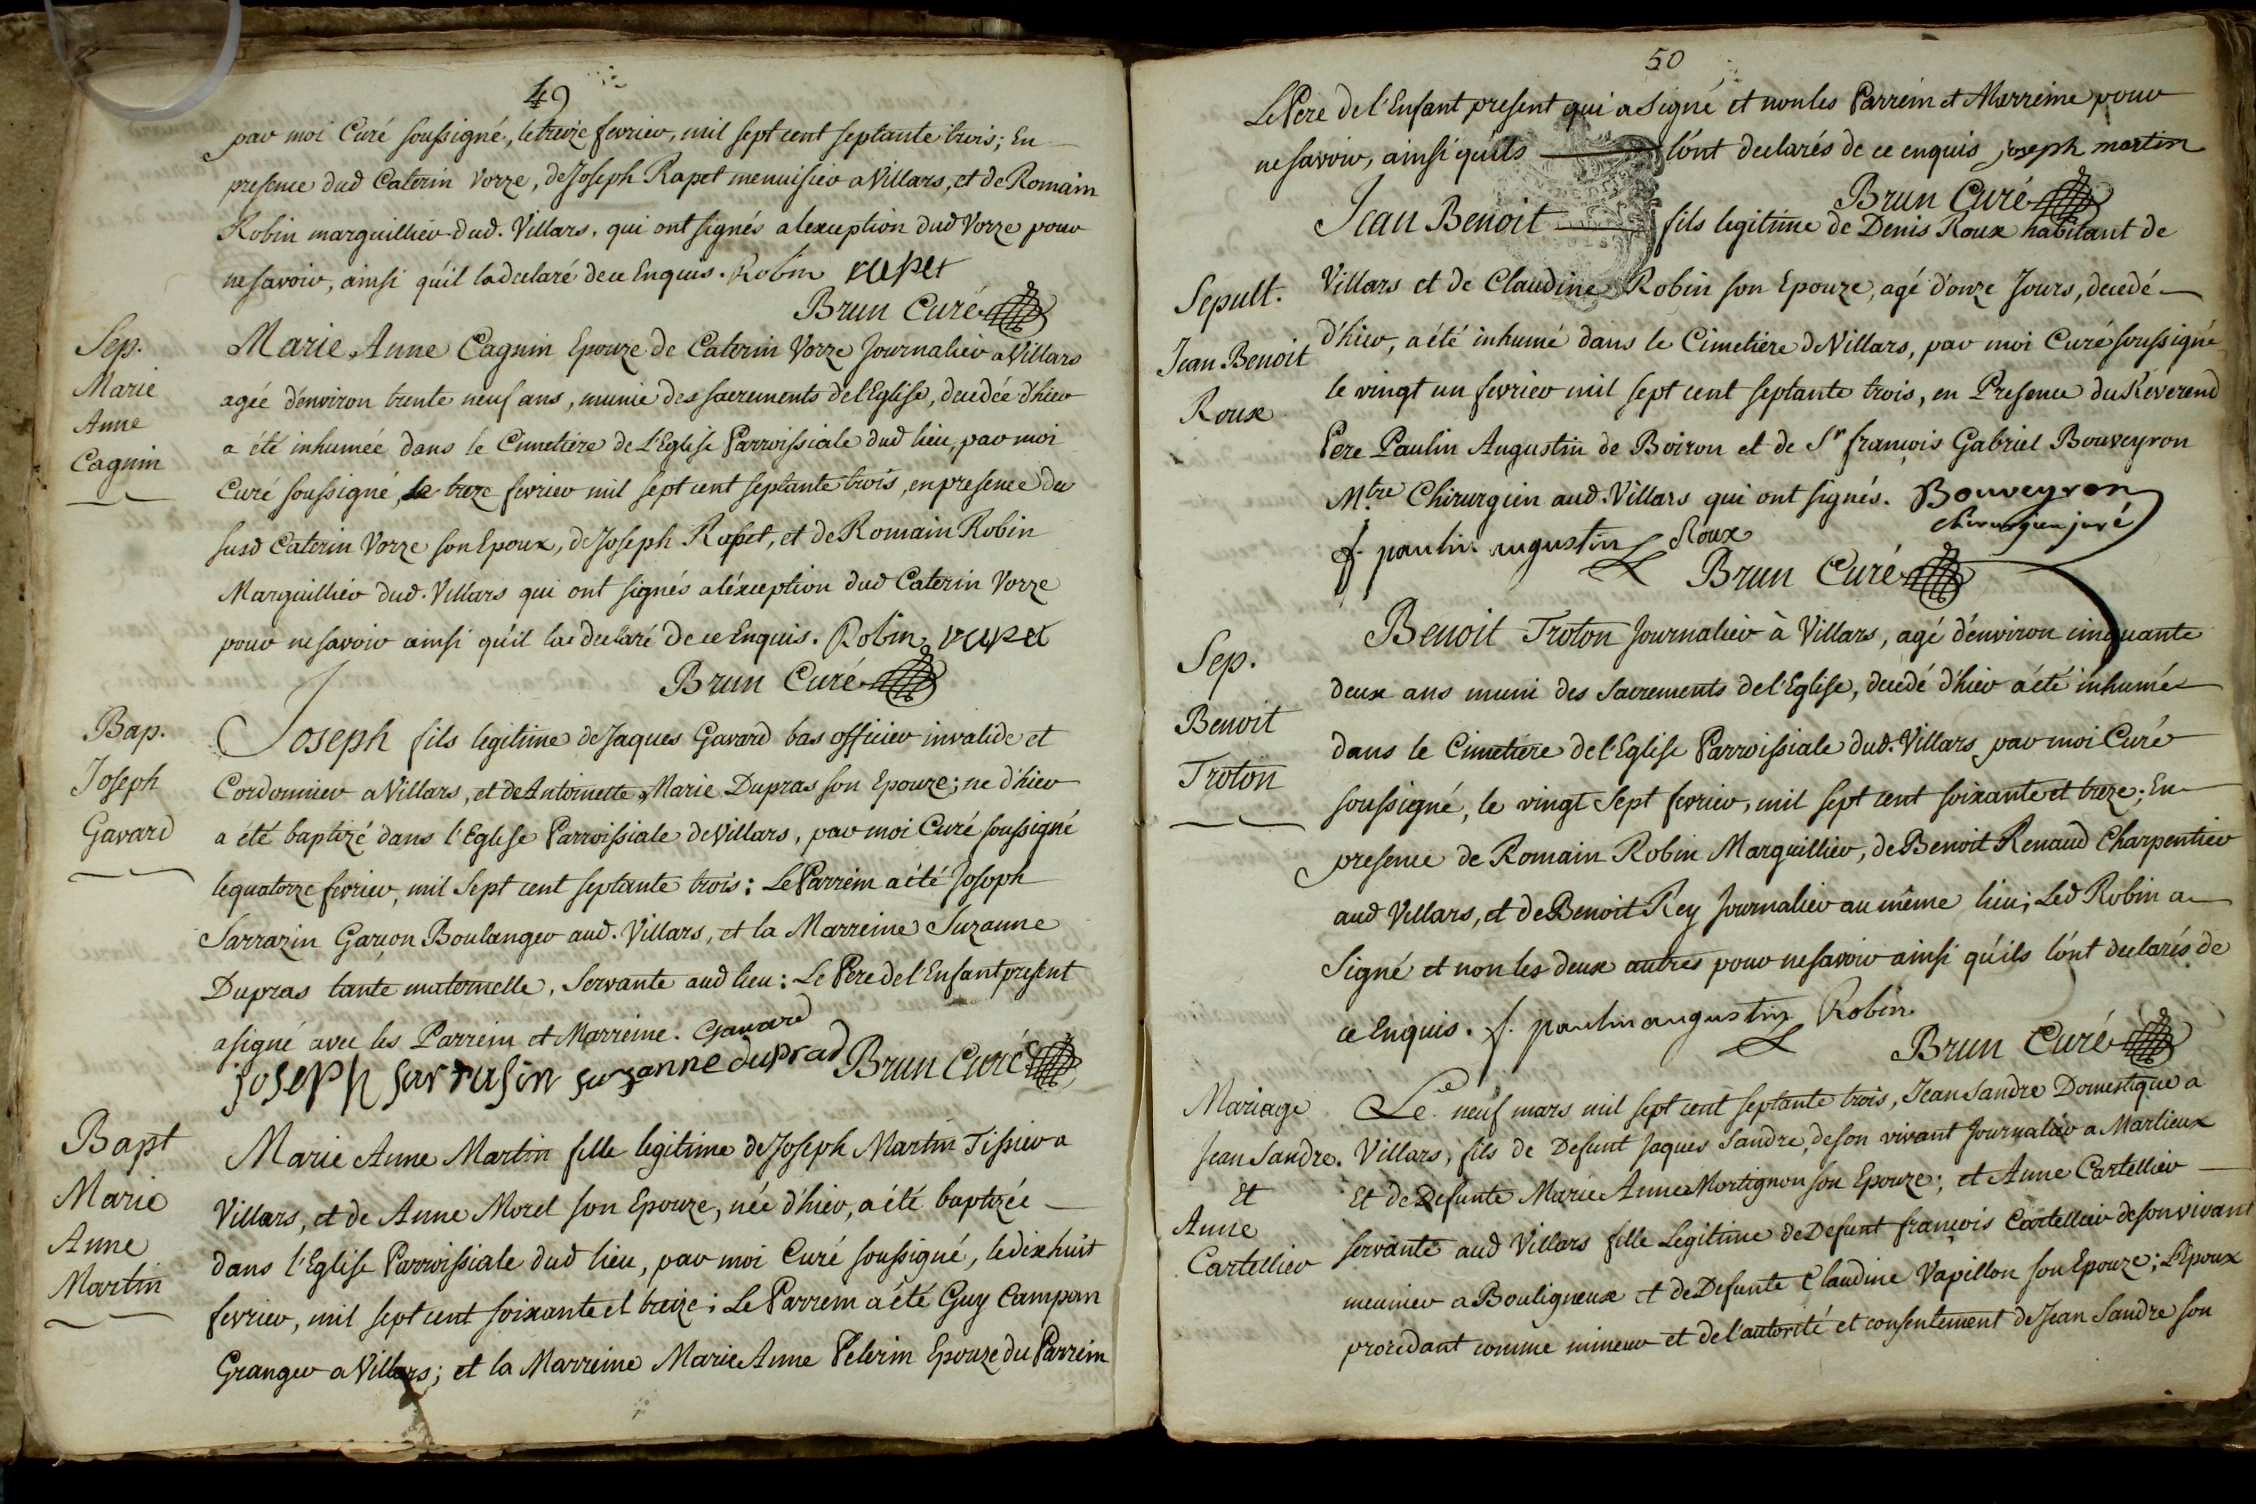 49
par moi Curé soussigné, le treize fevrier, mil sept cent septante trois; En
presence dud Caterin Vorze, de Joseph Rapet menuisier a Villars, et de Romain
Robin marguillier dud. Villars, qui ont signés a lexception dud Vorze pour
ne savoir, ainsi qu'il la declaré de ce Enquis. Robin rapet
Brun Curé
Sep.
Marie
Anne
Cagnin
Marie Anne Cagnin Epouze de Caterin Vorze Journalier a Villars
agée d'environ trente neuf ans, munie des sacrements de l'Eglise, decedée d'hier
a été inhumée dans le Cimetiere de L'Eglise Parroissiale dud lieu, par moi
Curé soussigné, le treze fevrier mil sept cent septante trois, en presence du
susd Caterin Vorze son Epoux, de Joseph Rapet, et de Romain Robin
Marguillier dud. Villars qui ont signés a léxception dud Caterin Vorze
pour ne savoir ainsi qu'il la declaré de ce Enquis. Robin rapet
Brun Curé
Bap.
Joseph
Gavard
Joseph fils legitime de Jaques Gavard bas officier invalide et
Cordonnier a Villars, et de Antoinette Marie Dupras son Epouze; ne d'hier
a été baptizé dans l'Eglise Parroissiale de Villars, par moi Curé soussigné
le quatorze fevrier, mil Sept cent septante trois: Le Parrein a été Joseph
Sarrazin Garçon Boulanger aud. Villars, et la Marreine Suzanne
Dupras tante maternelle, Servante aud lieu: Le Pere de l'Enfant present
a signé avec les Parrein et Marreine. Gavard
joseph sarrasin suzanne duprad Brun Curé
Bapt
Marie
Anne
Martin
Marie Anne Martin fille legitime de Joseph Martin Tissier a
Villars, et de Anne Morel son Epouze, née d'hier, a été baptizée
dans l'Eglise Parroissiale dud lieu, par moi Curé soussigné, le dixhuit
fevrier, mil sept cent soixante et treize; Le Parrein a été Guy Campan
Granger a Villars; et la Marreine Marie Anne Pelerin Epouze du Parrein
50
Le Pere de l'Enfant present qui a Signé et non les Parrein et Marreine pour
ne savoir, ainsi qu'ils l'ónt declarés de ce enquis joseph martin
Brun Curé
Sepult.
Jean Benoit
Roux
Jean Benoit fils legitime de Denis Roux habitant de
Villars et de Claudine Robin son Epouze, agé d'onze Jours, decedé
d'hier, a été inhumé dans le Cimetiere de Villars, par moi Curé soussigné
le vingt un fevrier mil sept cent septante trois, en Presence du Reverend
Pere Paulin Augustin de Boiron et de Sr françois Gabriel Bouveyron
M.tre Chirurgien aud. Villars qui ont signés. Bouveyron
chirurgien juré
f. paulin augustin Roux
Brun Curé
Sep.
Benoit
Troton
Benoit Troton Journalier à Villars, agé d'environ cinquante
deux ans muni des Sacrements de l'Eglise, decedé d'hier a été inhumé
dans le Cimetiere de l'Eglise Parroissiale dud. Villars par moi Curé
soussigné, le vingt Sept fevrier, mil sept cent soixante et treze; En
presence de Romain Robin Marguillier, de Benoit Renaud Charpentier
aud Villars, et de Benoit Rey Journalier au même lieu; Led Robin a
Signé et non les deux autres pour ne savoir ainsi qu'ils l'ónt declarés de
ce Enquis. f. paulin augustin Robin
Brun Curé
Mariage
Jean Sandre.
et
Anne
Cartellier
Le neuf mars mil sept cent septante trois, Jean Sandre Domestique a
Villars, fils de Defunt Jaques Sandre, de son vivant Journalier a Marlieux
Et de Defunte Marie Anne Mortignon son Epouze; et Anne Cartellier
servante aud Villars fille Legitime de Defunt françois Cartellier de son vivant
meunier a Bouligneux et de Defunte Claudine Vapillon son Epouze; L'Epoux
procedant comme mineur et de l'autorité et consentement de Jean Sandre son